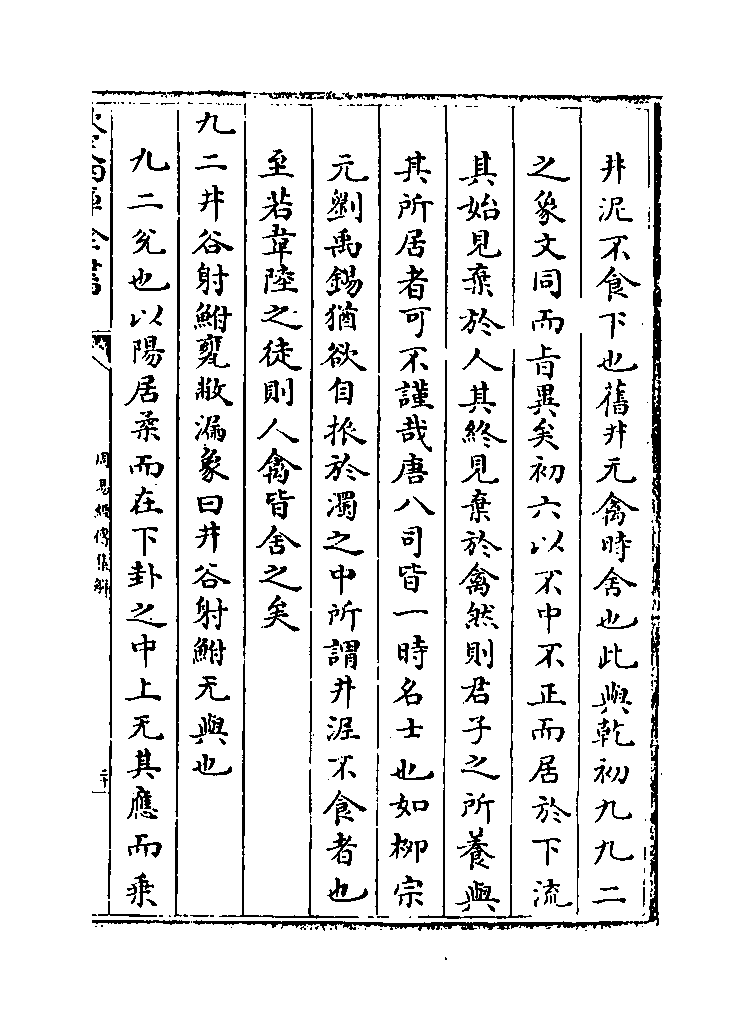 井泥不食下也舊井无禽時舍也此與乾初九九二
之象文同而㫖異矣初六以不中不正而居於下流
其始見棄於人其終見棄於禽然則君子之所養與
其所居者可不謹哉唐八司皆一時名士也如栁宗
元劉禹錫猶欲自振於濁之中所謂井泥不食者也
至若韋陸之徒則人禽皆舍之矣
九二井谷射鮒甕敝漏象曰井谷射鮒无與也
九二兊也以陽居柔而在下卦之中上无其應而乗
周易經傳集解